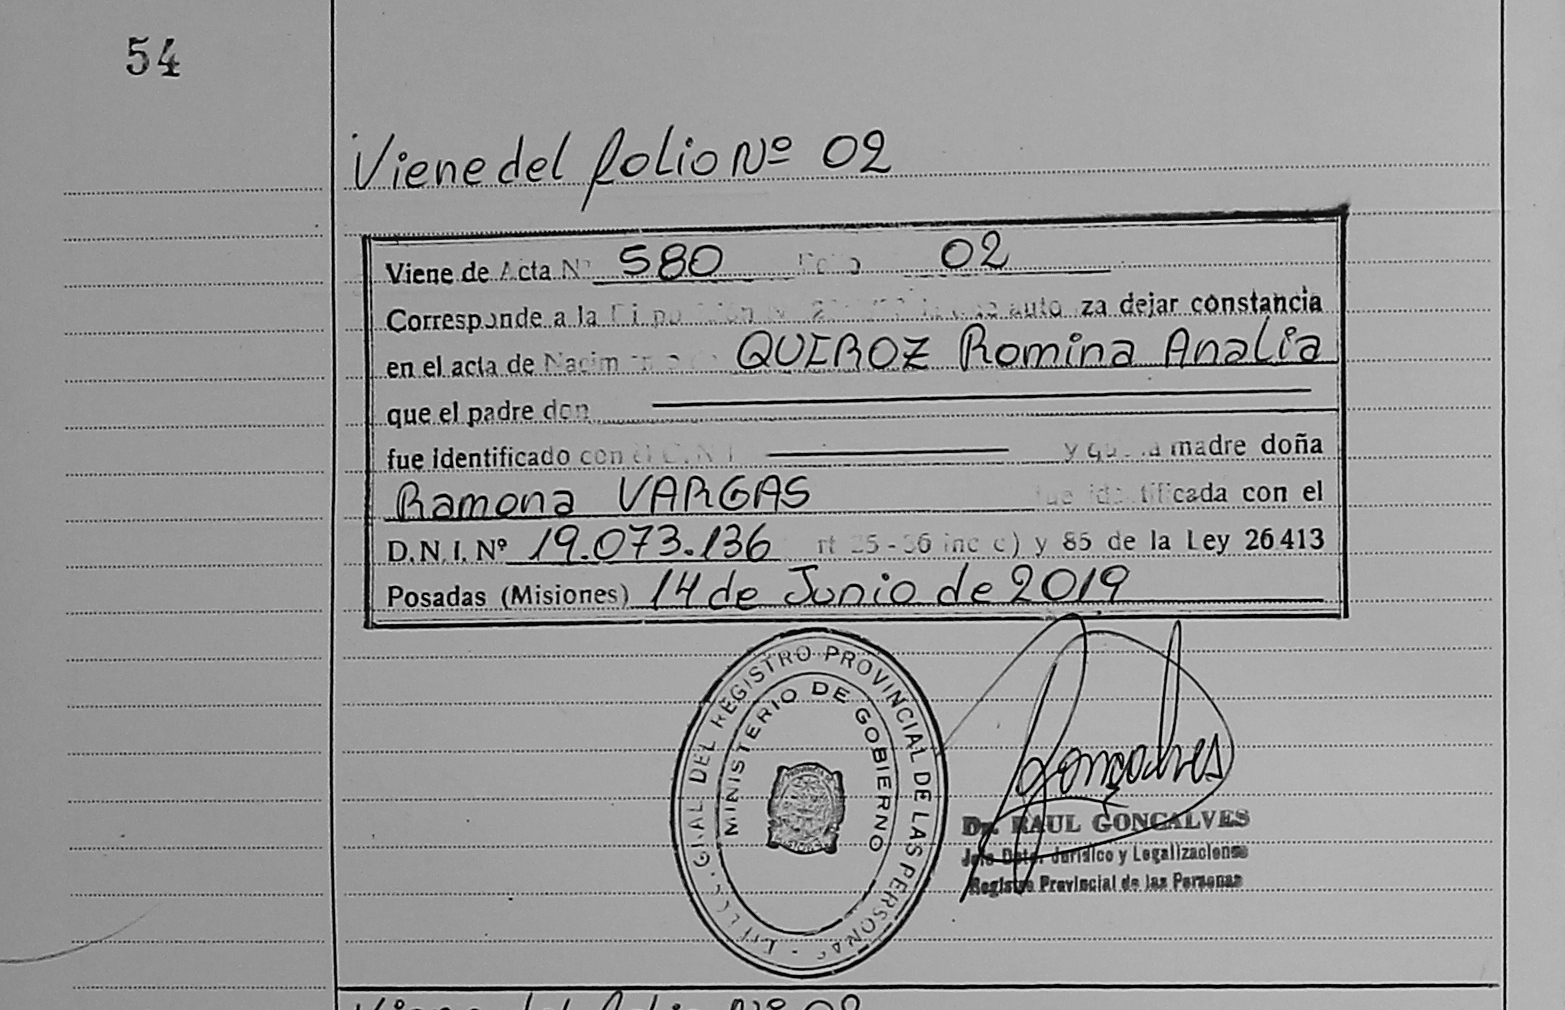 54
Viene del folio Nº 02
Viene de Acta Nº 580 Folio 02
Corresponde a la dejar constancia
en el acta de QUEROZ Romina Analia
que el padre don
fue identificado con el madre doña
Ramona VARGAS identificada con el
D.N.I. Nº 19.073.136 inc c) y 85 de la Ley 26.413
Posadas (Misiones) 14 de Junio de 2019
GRAL DEL REGISTRO PROVINCIAL DE LAS PERSONAS
MINISTERIO DE GOBIERNO
Gonçalves
Dr. RAUL GONCALVES
Jefe Dpto. Jurídico y Legalizaciones
Registro Provincial de las Personas
Viene del folio Nº 02